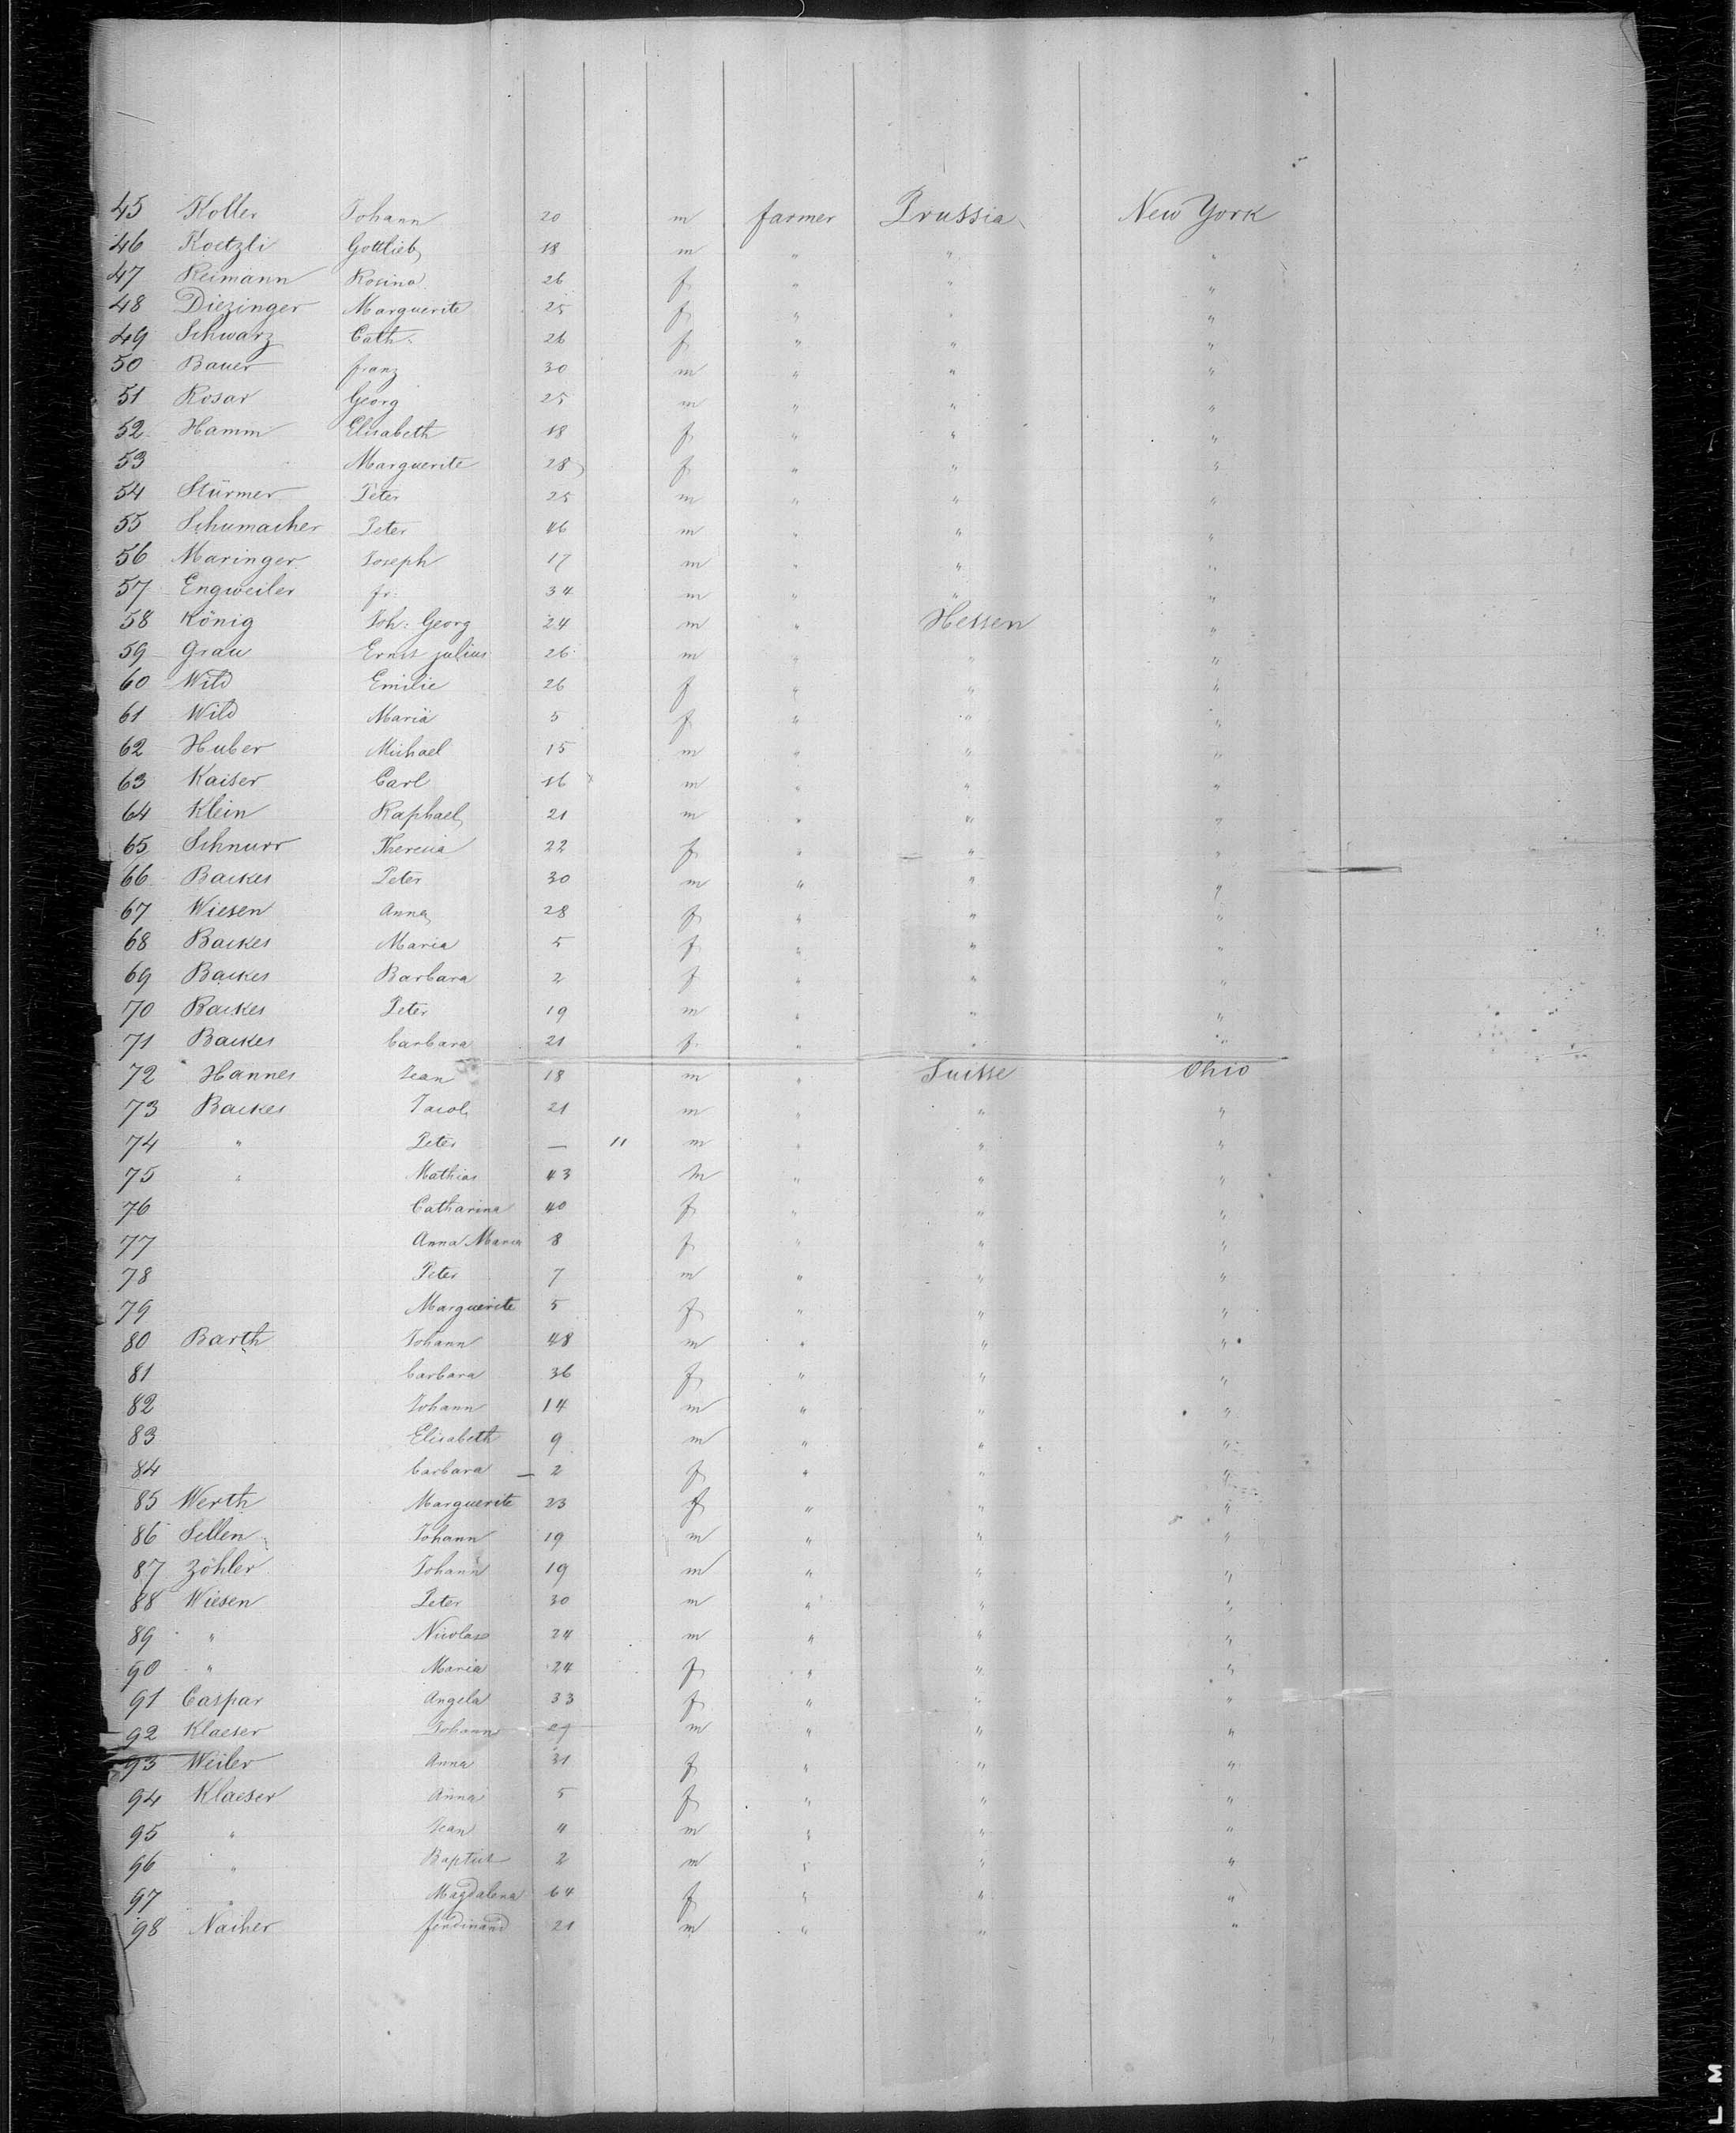 45 Koller Johann 20 m farmer Prussia New York
46 Koetzli Gottlieb 18 m " " "
47 Reimann Rosina 26 f " " "
48 Diezinger Marguerite 25 f " " "
49 Schwarz Cath: 26 f " " "
50 Bauer franz 30 m " " "
51 Rosar Georg 25 m " " "
52 Hamm Elisabeth 18 f " " "
53 Marguerite 28 f " " "
54 Stürmer Peter 25 m " " "
55 Schumacher Peter 46 m " " "
56 Maringer Joseph 17 m " " "
57 Engweiler fr: 34 m " " "
58 König Joh: Georg 24 m " Hessen "
59 Grau Ernst julius 26 m " " "
60 Wild Emilie 26 f " " "
61 Wild Maria 5 f " " "
62 Huber Michael 15 m " " "
63 Kaiser Carl 16 m " " "
64 Klein Raphael 21 m " " "
65 Schnurr Theresia 22 f " " "
66 Backes Peter 30 m " " "
67 Wiesen Anna 28 f " " "
68 Backes Maria 5 f " " "
69 Backes Barbara 2 f " " "
70 Backes Peter 19 m " " "
71 Backes barbara 21 f " " "
72 Hannes Jean 18 m " Suisse Ohio
73 Backes Jacob 21 m " " "
74 " Peter — 11 m " " "
75 " Mathias 43 m " " "
76 Catharina 40 f " " "
77 Anna Maria 8 f " " "
78 Peter 7 m " " "
79 Marguerite 5 f " " "
80 Barth Johann 48 m " " "
81 barbara 36 f " " "
82 Johann 14 m " " "
83 Elisabeth 9 m " " "
84 barbara — 2 f " " "
85 Werth Marguerite 23 f " " "
86 Sellen Johann 19 m " " "
87 Zöhler Johann 19 m " " "
88 Wiesen Peter 30 m " " "
89 " Nicolas 24 m " " "
90 " Maria 24 f " " "
91 Caspar Angela 33 f " " "
92 Klaeser Johann m " " "
93 Weiler Anna 31 f " " "
94 Klaeser Anna 5 f " " "
95 " Jean 4 m " " "
96 " Baptist 2 m " " "
97 " Magdalena 64 f " " "
98 Naiher ferdinand 21 m " " "
L M